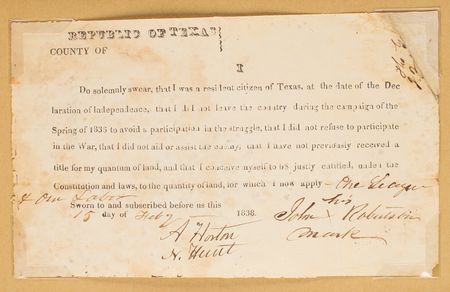 REPUBLIC OF TEXAS
COUNTY OF
I
Do solemnly swear, that I was a resident citizen of Texas, at the date of the Dec
laration of Independence, that I did not leave the country during the campaign of the
Spring of 1836 to avoid a participation in the struggle, that I did not refuse to participate
in the War, that I did not aid or assist the enemy, that I have not previously received a
title for my quantum of land, and that I conceive myself to be justly entitled, under the
Constitution and laws, to the quantity of land, for which I now apply - One League
& One Labor
Sworn to and subscribed before us this
15 day of Feby 1838.
John his Robertson
mark
A Horton
N. Hunt